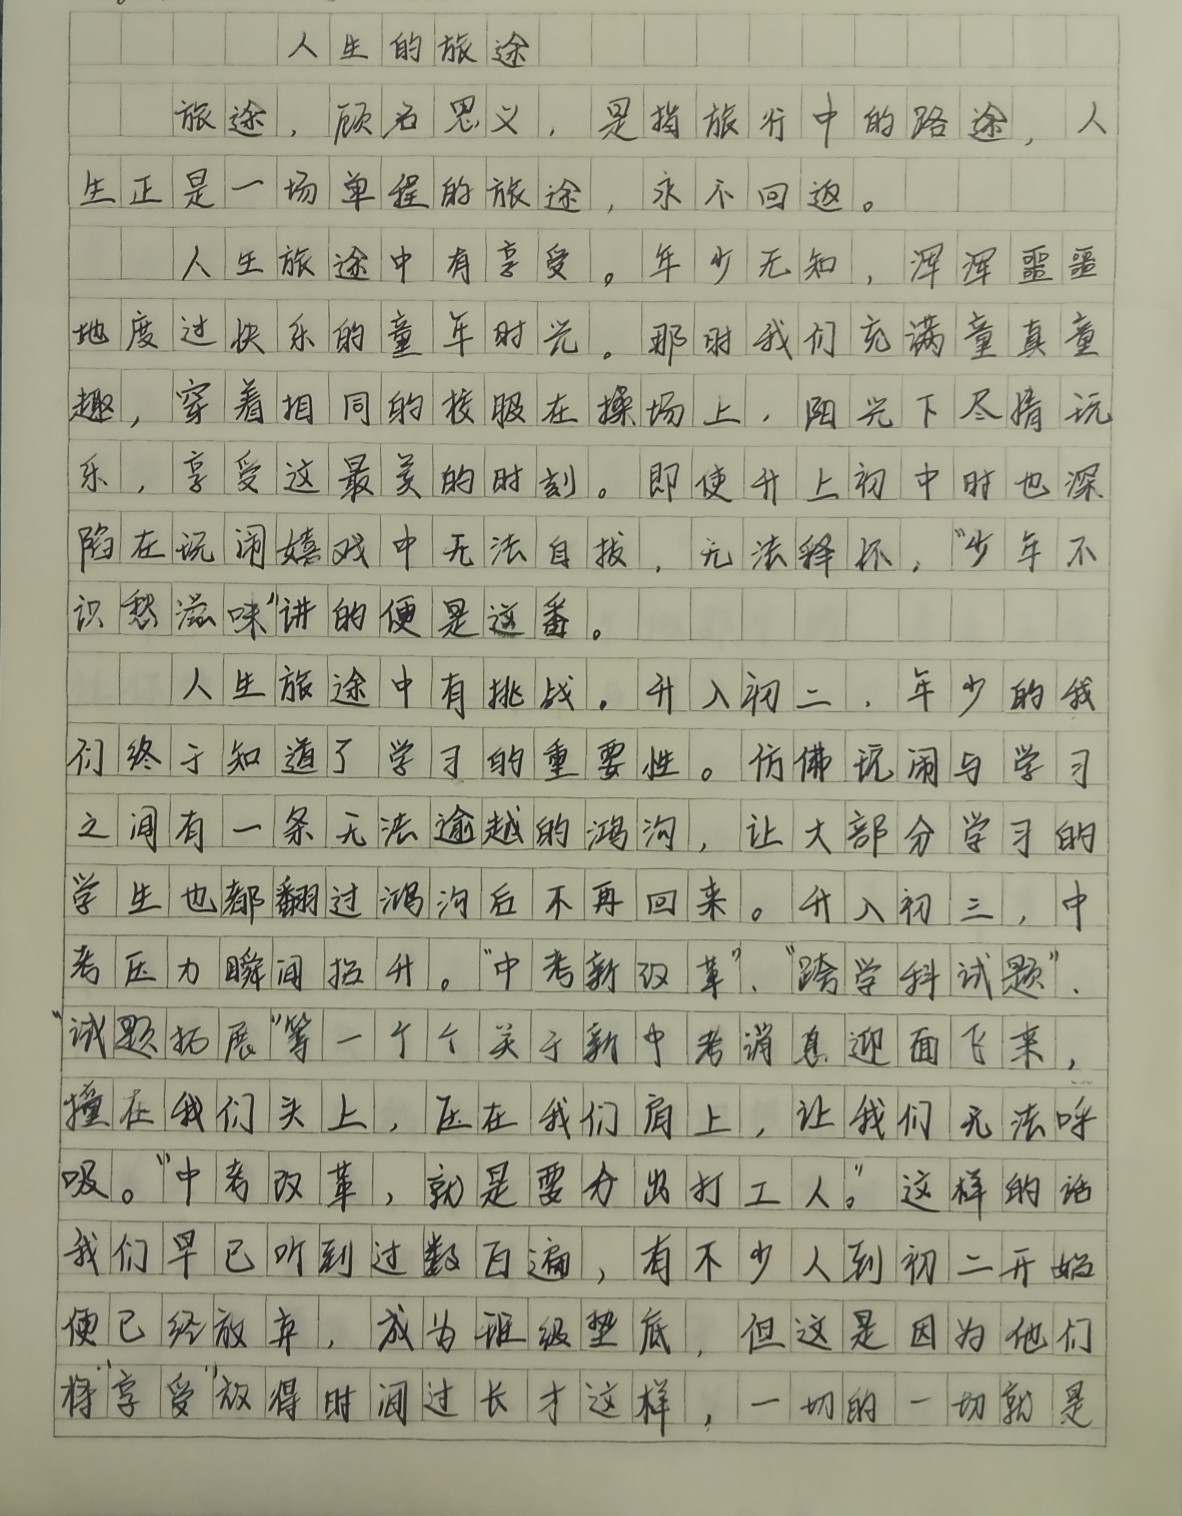 人生的旅途
旅途，顾名思义，是指旅行中的路途，人
生正是一场单程的旅途，永不回返。
人生旅途中有享受。年少无知，浑浑噩噩
地度过快乐的童年时光。那时我们充满童真童
趣，穿着相同的校服在操场上，阳光下尽情玩
乐，享受这最美的时刻。即使升上初中时也深
陷在玩闹嬉戏中无法自拔，无法释怀，“少年不
识愁滋味”讲的便是这番。
人生旅途中有挑战。升入初二，年少的我
们终于知道了学习的重要性。仿佛玩闹与学习
之间有一条无法逾越的鸿沟，让大部分学习的
学生也都翻过鸿沟后不再回来。升入初三，中
考压力瞬间抬升。“中考新改革”、“跨学科试题”、
“试题拓展”等一个个关于新中考消息迎面飞来，
撞在我们头上，压在我们肩上，让我们无法呼
吸。“中考改革，就是要分出打工人。”这样的话
我们早已听到过数百遍，有不少人到初二开始
便已经放弃，成为班级垫底，但这是因为他们
将“享受”放得时间过长才这样，一切的一切就是